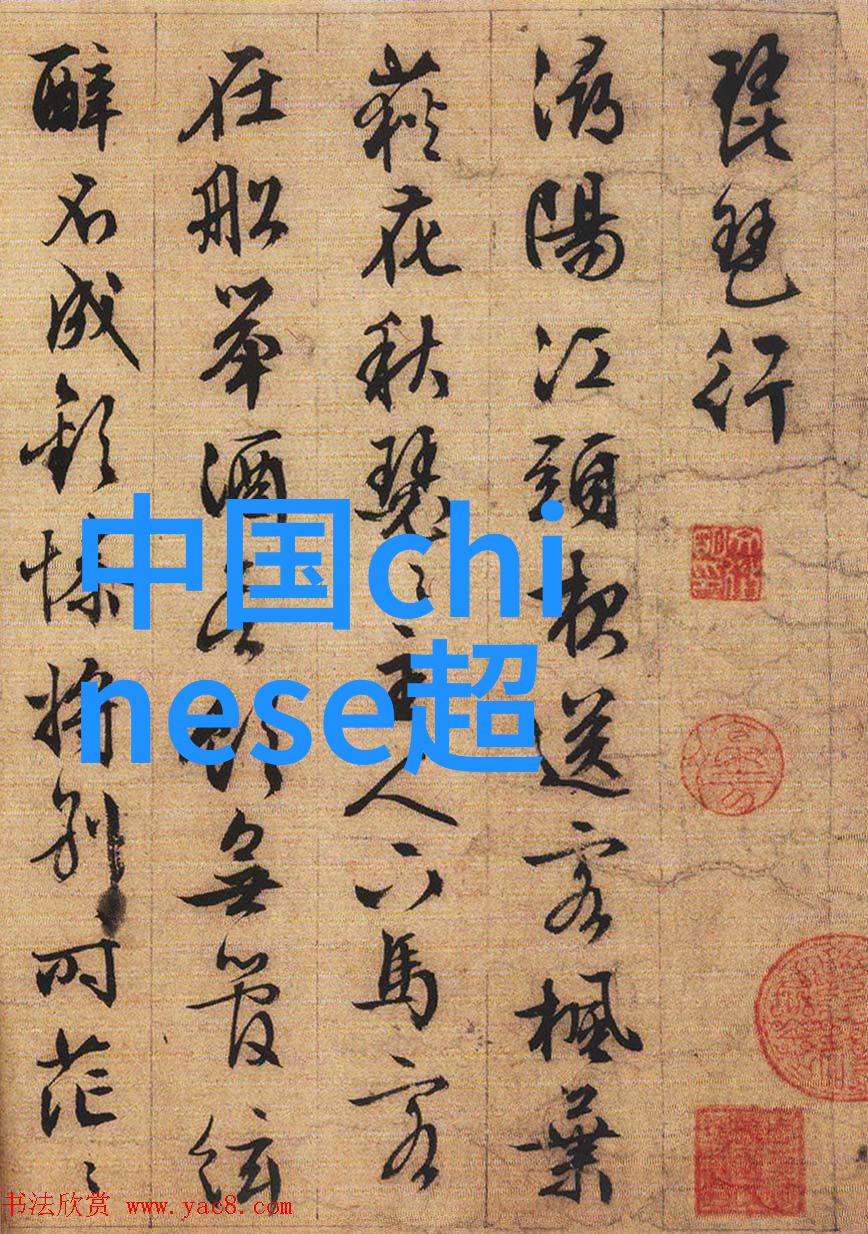 琵琶行
潯陽江頭夜送客楓葉
荻花秋瑟〻主人下馬客
在船舉酒欲飲無管絃
醉不成歡慘將別時茫〻
中国chi
nese超
书法欣赏 www.yac8.com